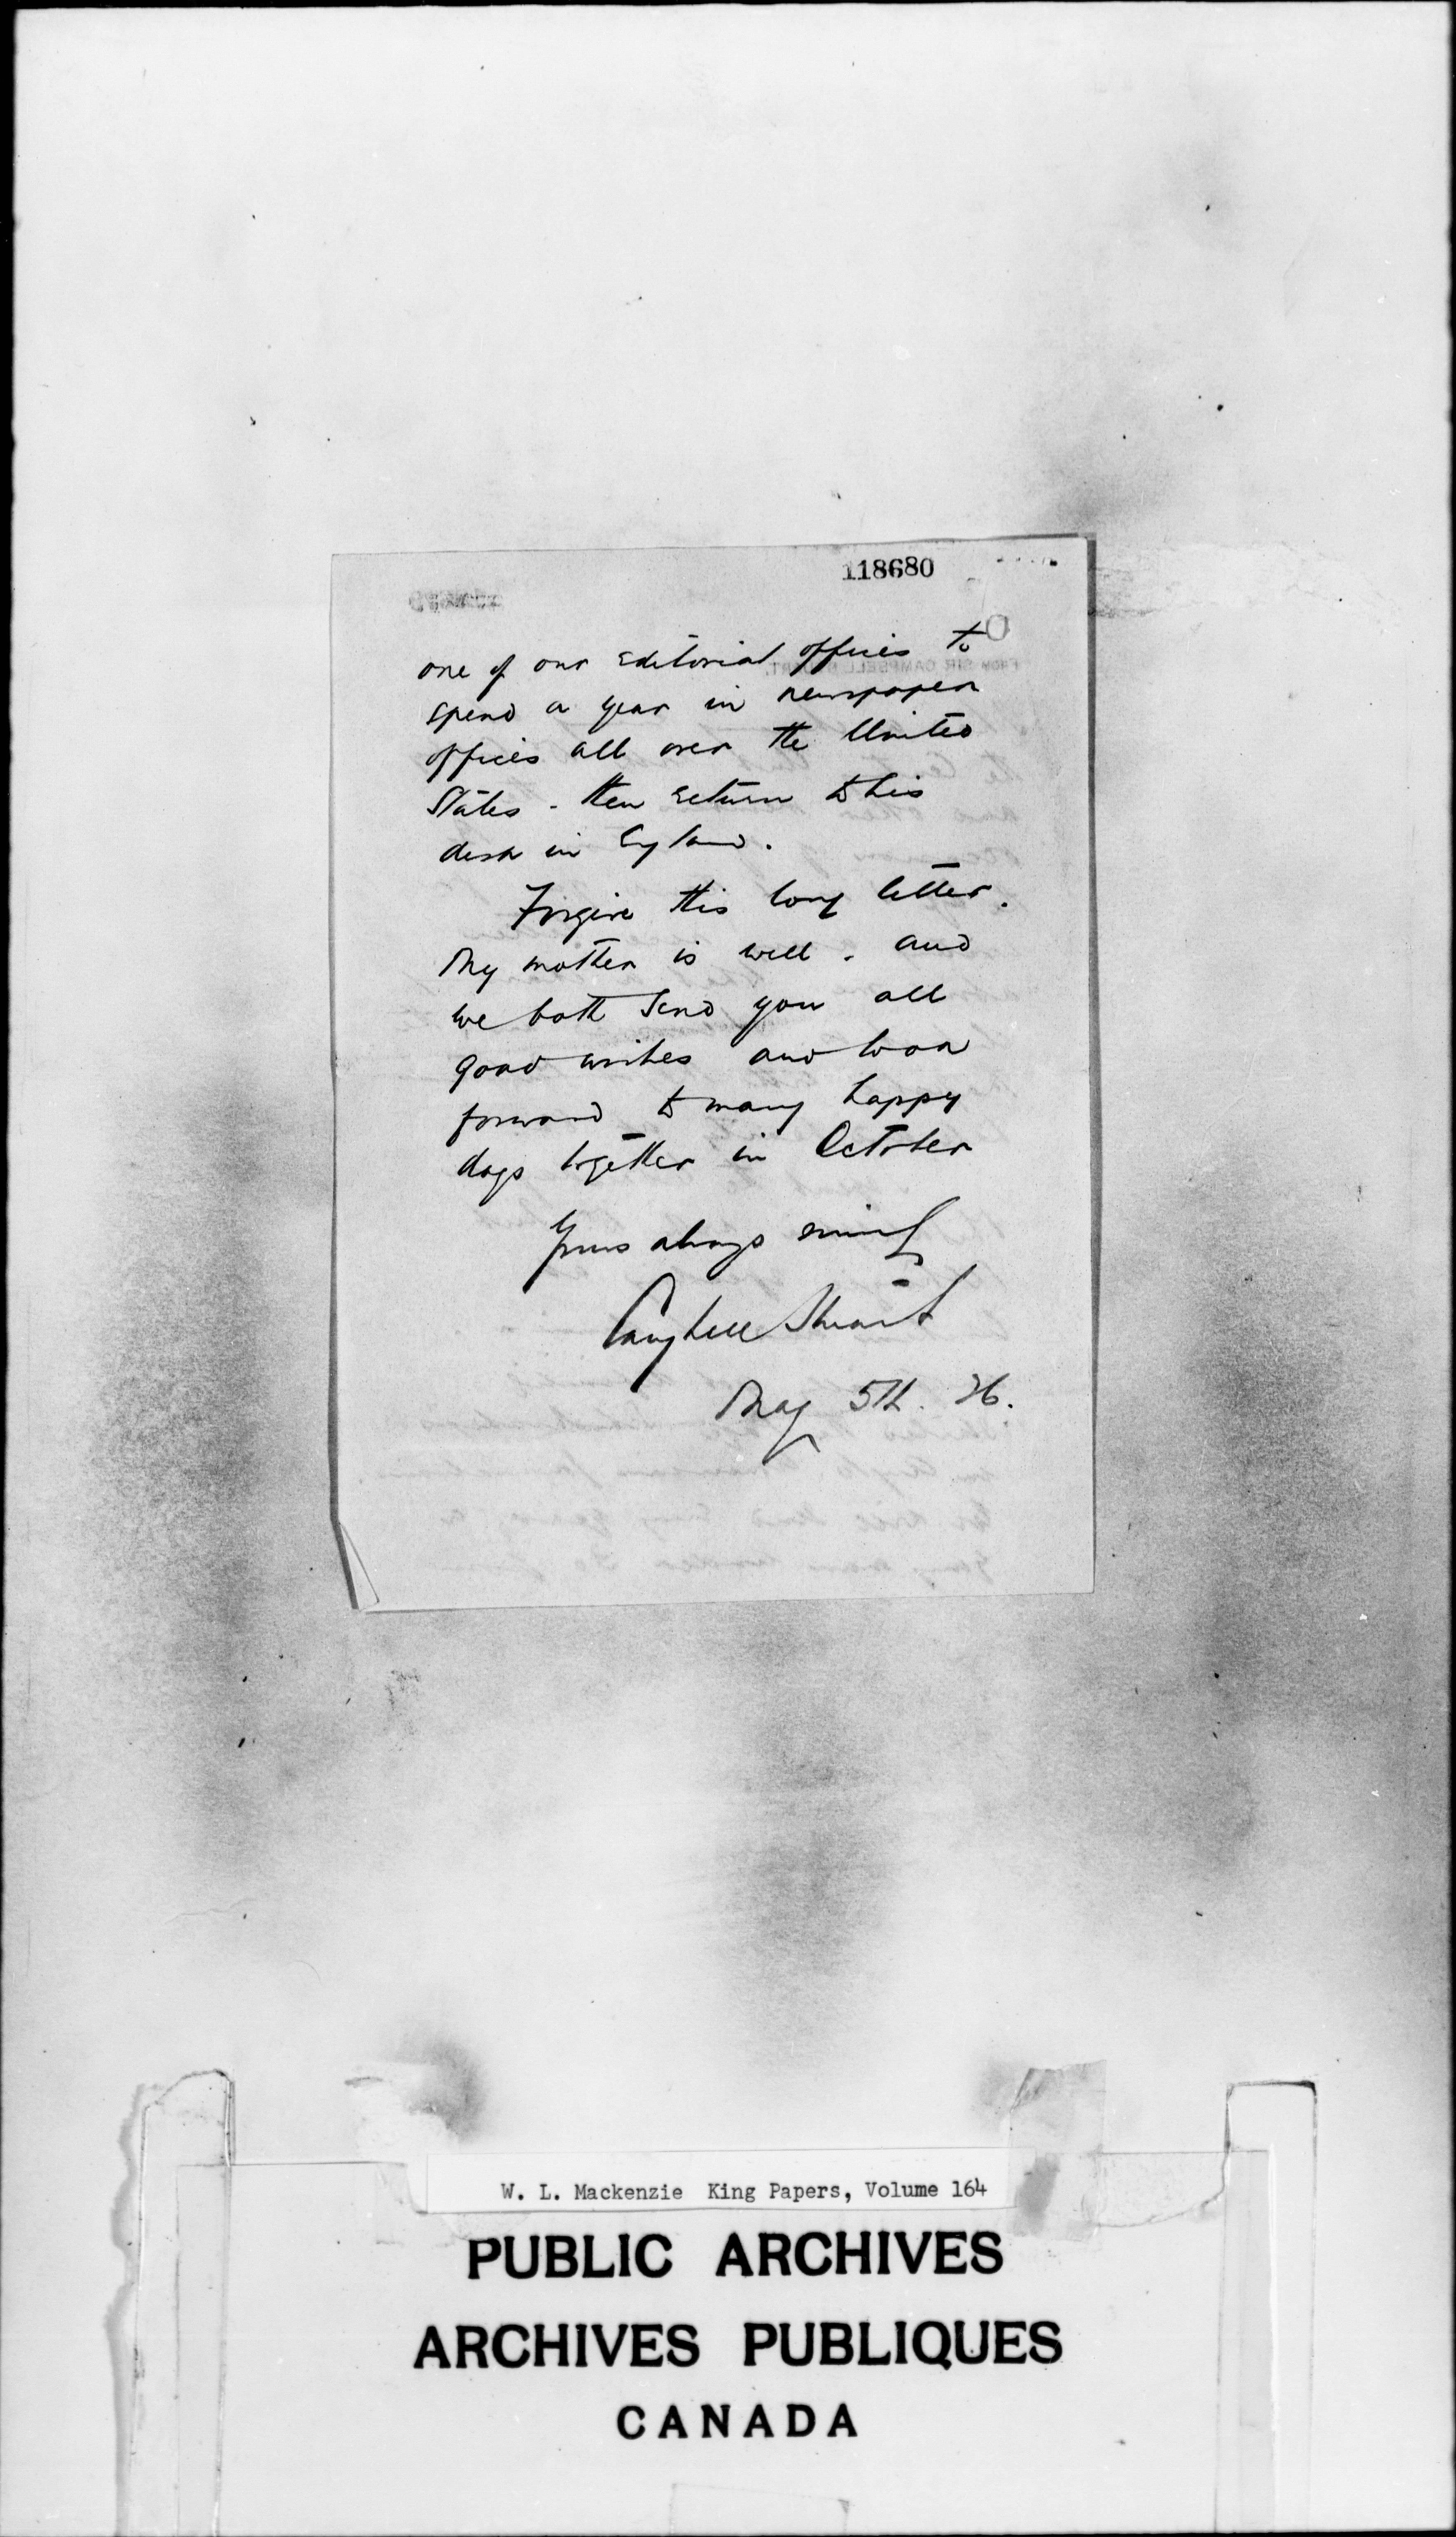 118680
one of our editorial offices to
spend a year in newspaper
offices all over the United
States - then return to his
desk in England.
Forgive this long letter.
My mother is well - and
we both send you all
good wishes and look
forward to many happy
days together in October
Yours always
Campbell Stuart
May 5th. 26.
W. L. Mackenzie King Papers, Volume 164
PUBLIC ARCHIVES
ARCHIVES PUBLIQUES
CANADA